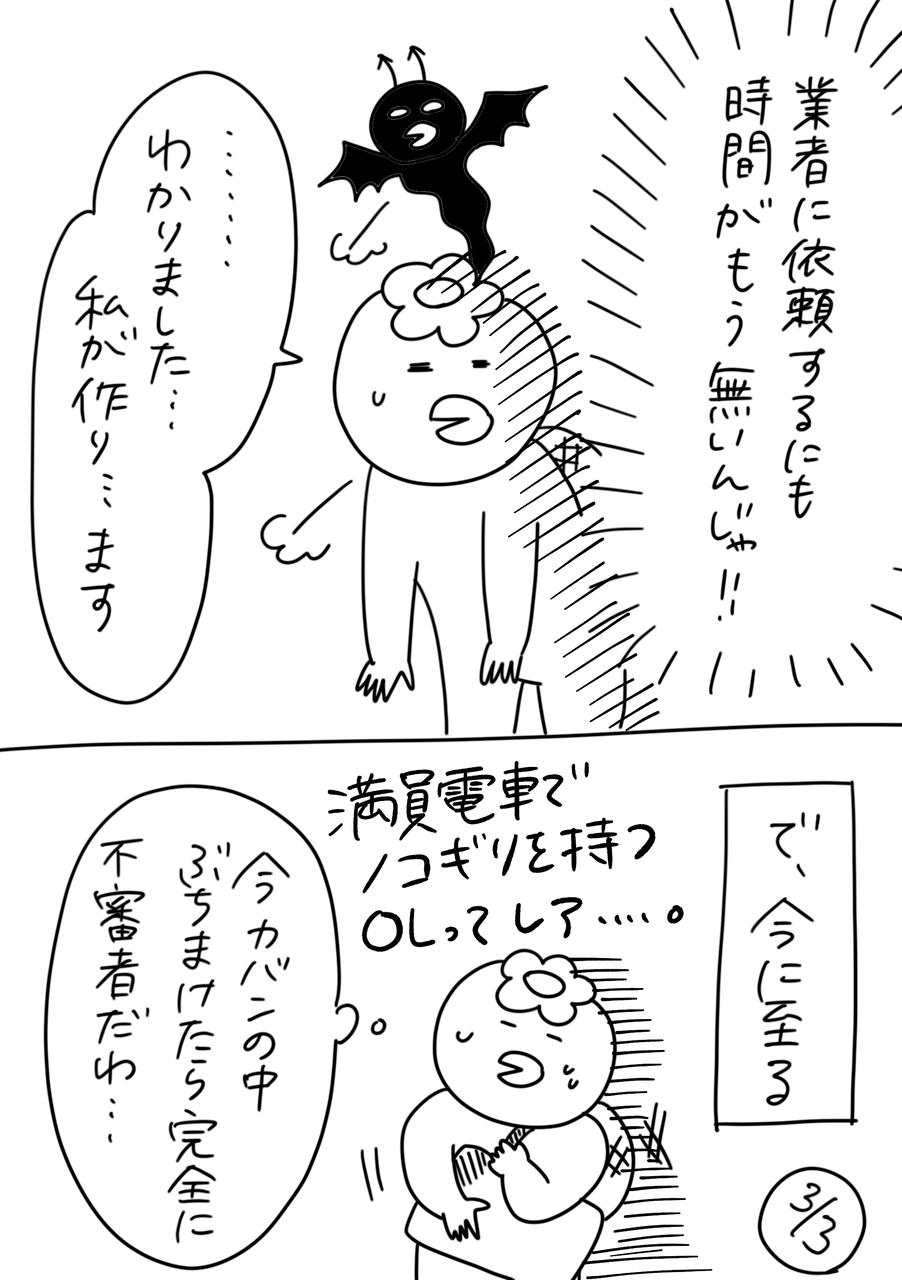 業者に依頼するにも
時間がもう無いんじゃ!!
……
わかりました…
私が作り…ます
で、今に至る
満員電車で
ノコギリを持つ
OLってレア…。
今カバンの中
ぶちまけたら完全に
不審者だわ…
3/3